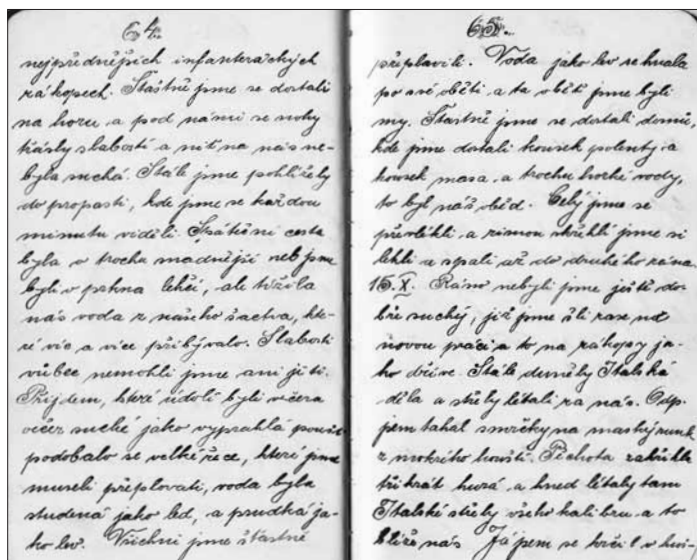 64.
nejpřednějších infanteráckých
zákopech. Štastně jsme se dostali
na horu a pod námi se nohy
třásly slabostí a nit na nás ne-
byla suchá. Stále jsme pohlížely
do propasti, kde jme se každou
minutu viděli. Spáteční cesta
byla o trochu snadnější neb jsme
byli v prkna lehčí, ale tížila
nás voda z našeho šactva, kte-
ré víc a více přibývalo. Slabostí
vůbec nemohli jsme ani jíti.
Přijdem, které údolí byli včera
večer suché jako vyprahlá poušt
podobalo se velké řece, které jsme
museli přeplovati, voda byla
studená jako led, a prudká ja-
ko lev. Všichni jsme štastně
65.
přeplavili. Voda jako lev se hnala
po své oběti a ta oběť jsme byli
my. Štastně jsme se dostali domů,
kde jsme dostali kousek polenty a
kousek masa, a trochu horké vody,
to byl náš oběd. Celý jsme se
převlékli a zimou skřehlí jsme si
lehli a spali až do druhého rána.
15.X. Ráno nebyli jsme ještě do-
bře suchý, již jsme šli zase na
novou práci a to na zákopy ja-
ko dříve. Stále duněly Italská
děla a střely létali za nás. Odp.
jsem tahal smrčky na
z mokrého houští. Pěchota zakřikla
třikrát hurá, a hned létaly tam
Italské střely všeho kalibru a to
blíže nás Já jsem se krčil v